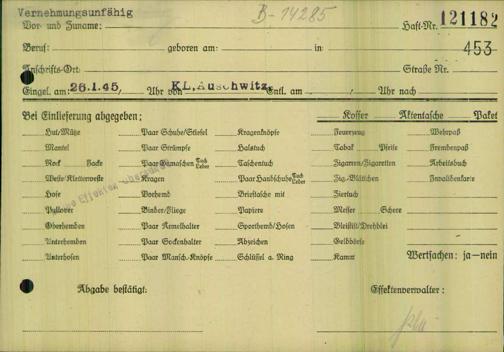 Vernehmungsunfähig B-14285
Vor- und Zuname: Haft-Nr. 121182
Beruf: geboren am: in 453
Anschrifts-Ort: Straße Nr.
Eingel. am: 26.1.45, Uhr von KL.Auschwitz Entl. am: Uhr nach
Bei Einlieferung abgegeben: Koffer Aktentasche Paket
Hut/Mütze Paar Schuhe/Stiefel Kragenknöpfe Feuerzeug Wehrpaß
Mantel Paar Strümpfe Halstuch Tabak Pfeife Fremdenpaß
Rock Jacke Paar Gamaschen Tuch Leder Taschentuch Zigarren/Zigaretten Arbeitsbuch
Weste/Kletterweste Kragen Paar Handschuhe Tuch Leder Zig.-Blättchen Invalidenkarte
Hose Vorhemd Brieftasche mit Ziertuch
Pullover Binder/Fliege Papiere Messer Schere
Oberhemden Paar Ärmelhalter Sporthemd/Hosen Bleistift/Drehblei
Unterhemden Paar Sockenhalter Abzeichen Geldbörse
Unterhosen Paar Mansch.-Knöpfe Schlüssel a. Ring Kamm Wertsachen: ja—nein
Abgabe bestätigt: Effektenverwalter: